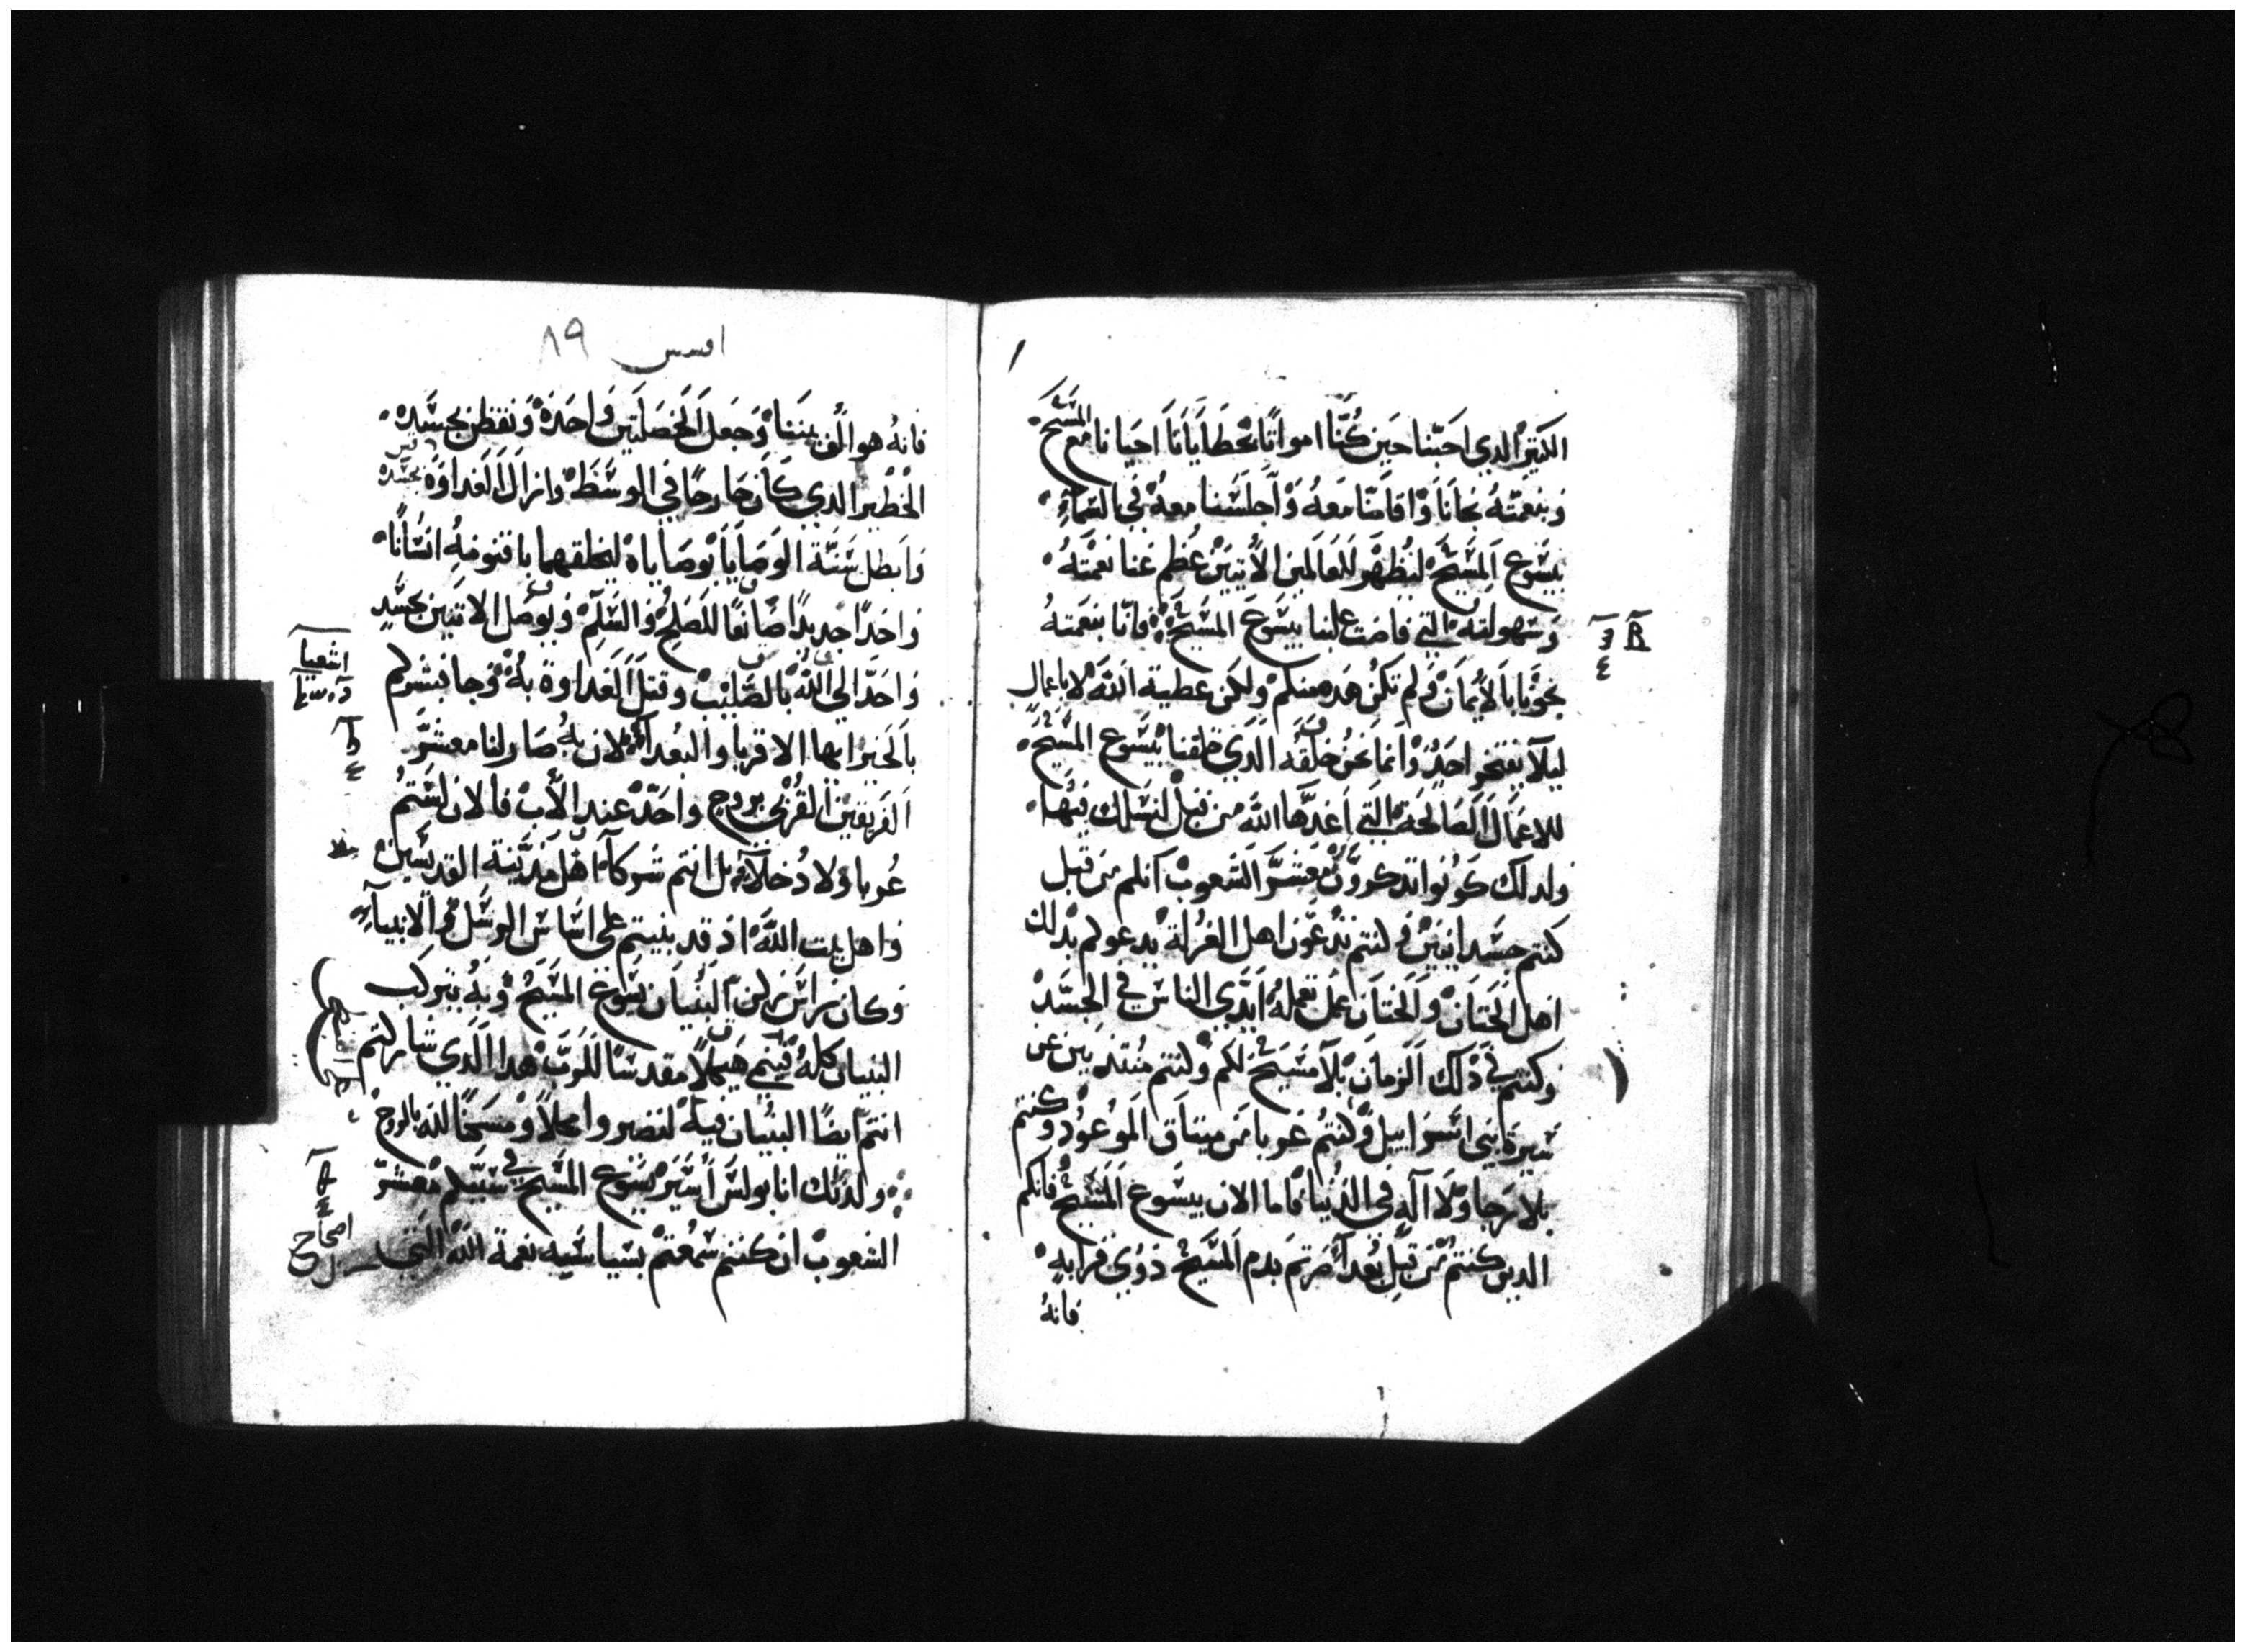 الكتير الدي احبّنا حين كُنّا امواتًا بخطايانا احيانا مع المسيح
وبنعمته نجانا واقامنا معه واجلسنا معه في السماءِ
بيسوع المسيح ليُظهر للعالمين الأتيين عُظم غنا نعمته
وسهولته التي فاضت علينا بيسوع المسيح فانّا بنعمته
نجونا بالأيمان ولم تكن هده منكم ولكن عطية الله لا باعمال
ليلا يفتخر احدٌ وانما نحن خلقه الدي خلقنا بيسوع المسيح
للاعمال الصالحة التي اعدّها الله من قبل لنسلك فيها
ولدلك كونوا تدكرون معشر الشعوب انكم من قبل
كنتم جسدانيين وكنتم تدعون اهل الغرلة يدعوكم بدلك
اهل الختان والختان عمل تعمله ايدي الناس في الجسد
وكنتم في دلك الزمان بلا مسيح لكم وكنتم منتدبين عن
سيرة بني اسراييل وكنتم غربا من ميتاق الموعود وكنتم
بلا رجا ولا اله في الدنيا فاما الان بيسوع المسيح فانكم
الدين كنتم من قبل بُعدا صرتم بدم المسيح دوي قرابه
فانهُ
افسس ٨٩
فانهُ هو الّف بيننا وجعل الخصلتين واحدة ونقض بجسده
الخطير الدي كان حارجًا في الوسط وازال العداوة بجسده
وابطل سنّة الوصايا بوصاياه ليخلقهما باقنومهِ انسانًا
واحدًا جديدًا صانعًا للصلح والسلم ويوصل الاتنين بجسدٍ
واحدٍ الي الله بالصليب وقتل العداوة به وجا فبشركم
بالخير ايها الاقربا والبعدا لان به صار لنا معشر
الفريقين القربي بروح واحدٍ عند الأب فالان لستم
غربا ولا دُخلا بل انتم شركا اهل مدينة القديسين
واهل بيت الله اد قد بنيتم علي اساس الرسل والانبياءِ
وكان راس ركن البنيان يسوع المسيح وبه يتركب
البنيان كلهُ فينمي هيكلاً مقدسًا للرب هدا الدي شاركتم
انتم ايضًا البنيان فيه لتصيروا محلاً ومسكنًا لله بالروح
ولدلك انا بولس أسير يسوع المسيح في سببكم معشر
الشعوب ان كنتم سمعتم بسياسيه نعمة الله التي
اشعيا
اصحاح